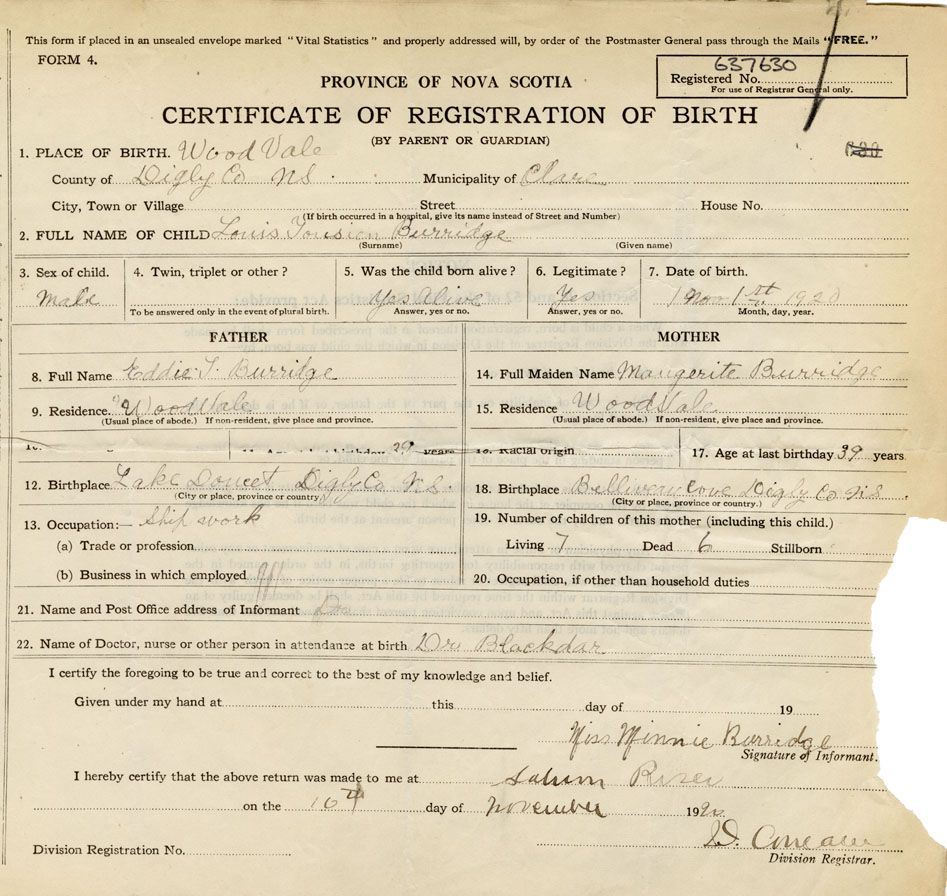 This form if placed in an unsealed envelope marked "Vital Statistics" and properly addressed will, by order of the Postmaster General pass through the Mails "FREE."
FORM 4.
637630
Registered No.
For use of Registrar General only.
PROVINCE OF NOVA SCOTIA
CERTIFICATE OF REGISTRATION OF BIRTH
(BY PARENT OR GUARDIAN)
1. PLACE OF BIRTH. Wood Vale
County of Digby Co NS Municipality of Clare
City, Town or Village Street House No.
(If birth occurred in a hospital, give its name instead of Street and Number)
2. FULL NAME OF CHILD Louis Burridge
(Surname) (Given name)
3. Sex of child. 4. Twin, triplet or other? 5. Was the child born alive? 6. Legitimate? 7. Date of birth.
Male Yes Alive Yes Nov 1st 1920
To be answered only in the event of plural birth. Answer, yes or no. Answer, yes or no. Month, day, year.
FATHER MOTHER
8. Full Name Eddie T. Burridge 14. Full Maiden Name Mangerite Burridge
9. Residence. Wood Vale 15. Residence Wood Vale
(Usual place of abode.) If non-resident, give place and province. (Usual place of abode.) If non-resident, give place and province.
39 years 16. Racial origin 17. Age at last birthday 39 years
12. Birthplace Lake Doucet Digby Co N.S. 18. Birthplace Belliveau Cove Digby Co NS
(City or place, province or country) (City or place, province or country.)
13. Occupation:— Ship work 19. Number of children of this mother (including this child.)
(a) Trade or profession Living 7 Dead 6 Stillborn
(b) Business in which employed 20. Occupation, if other than household duties
21. Name and Post Office address of Informant
22. Name of Doctor, nurse or other person in attendance at birth Dr. Blackdar
I certify the foregoing to be true and correct to the best of my knowledge and belief.
Given under my hand at this day of 19
Miss Minnie Burridge
Signature of Informant.
I hereby certify that the above return was made to me at Salmon River
on the 16th day of November 1920
Comeau
Division Registration No. Division Registrar.